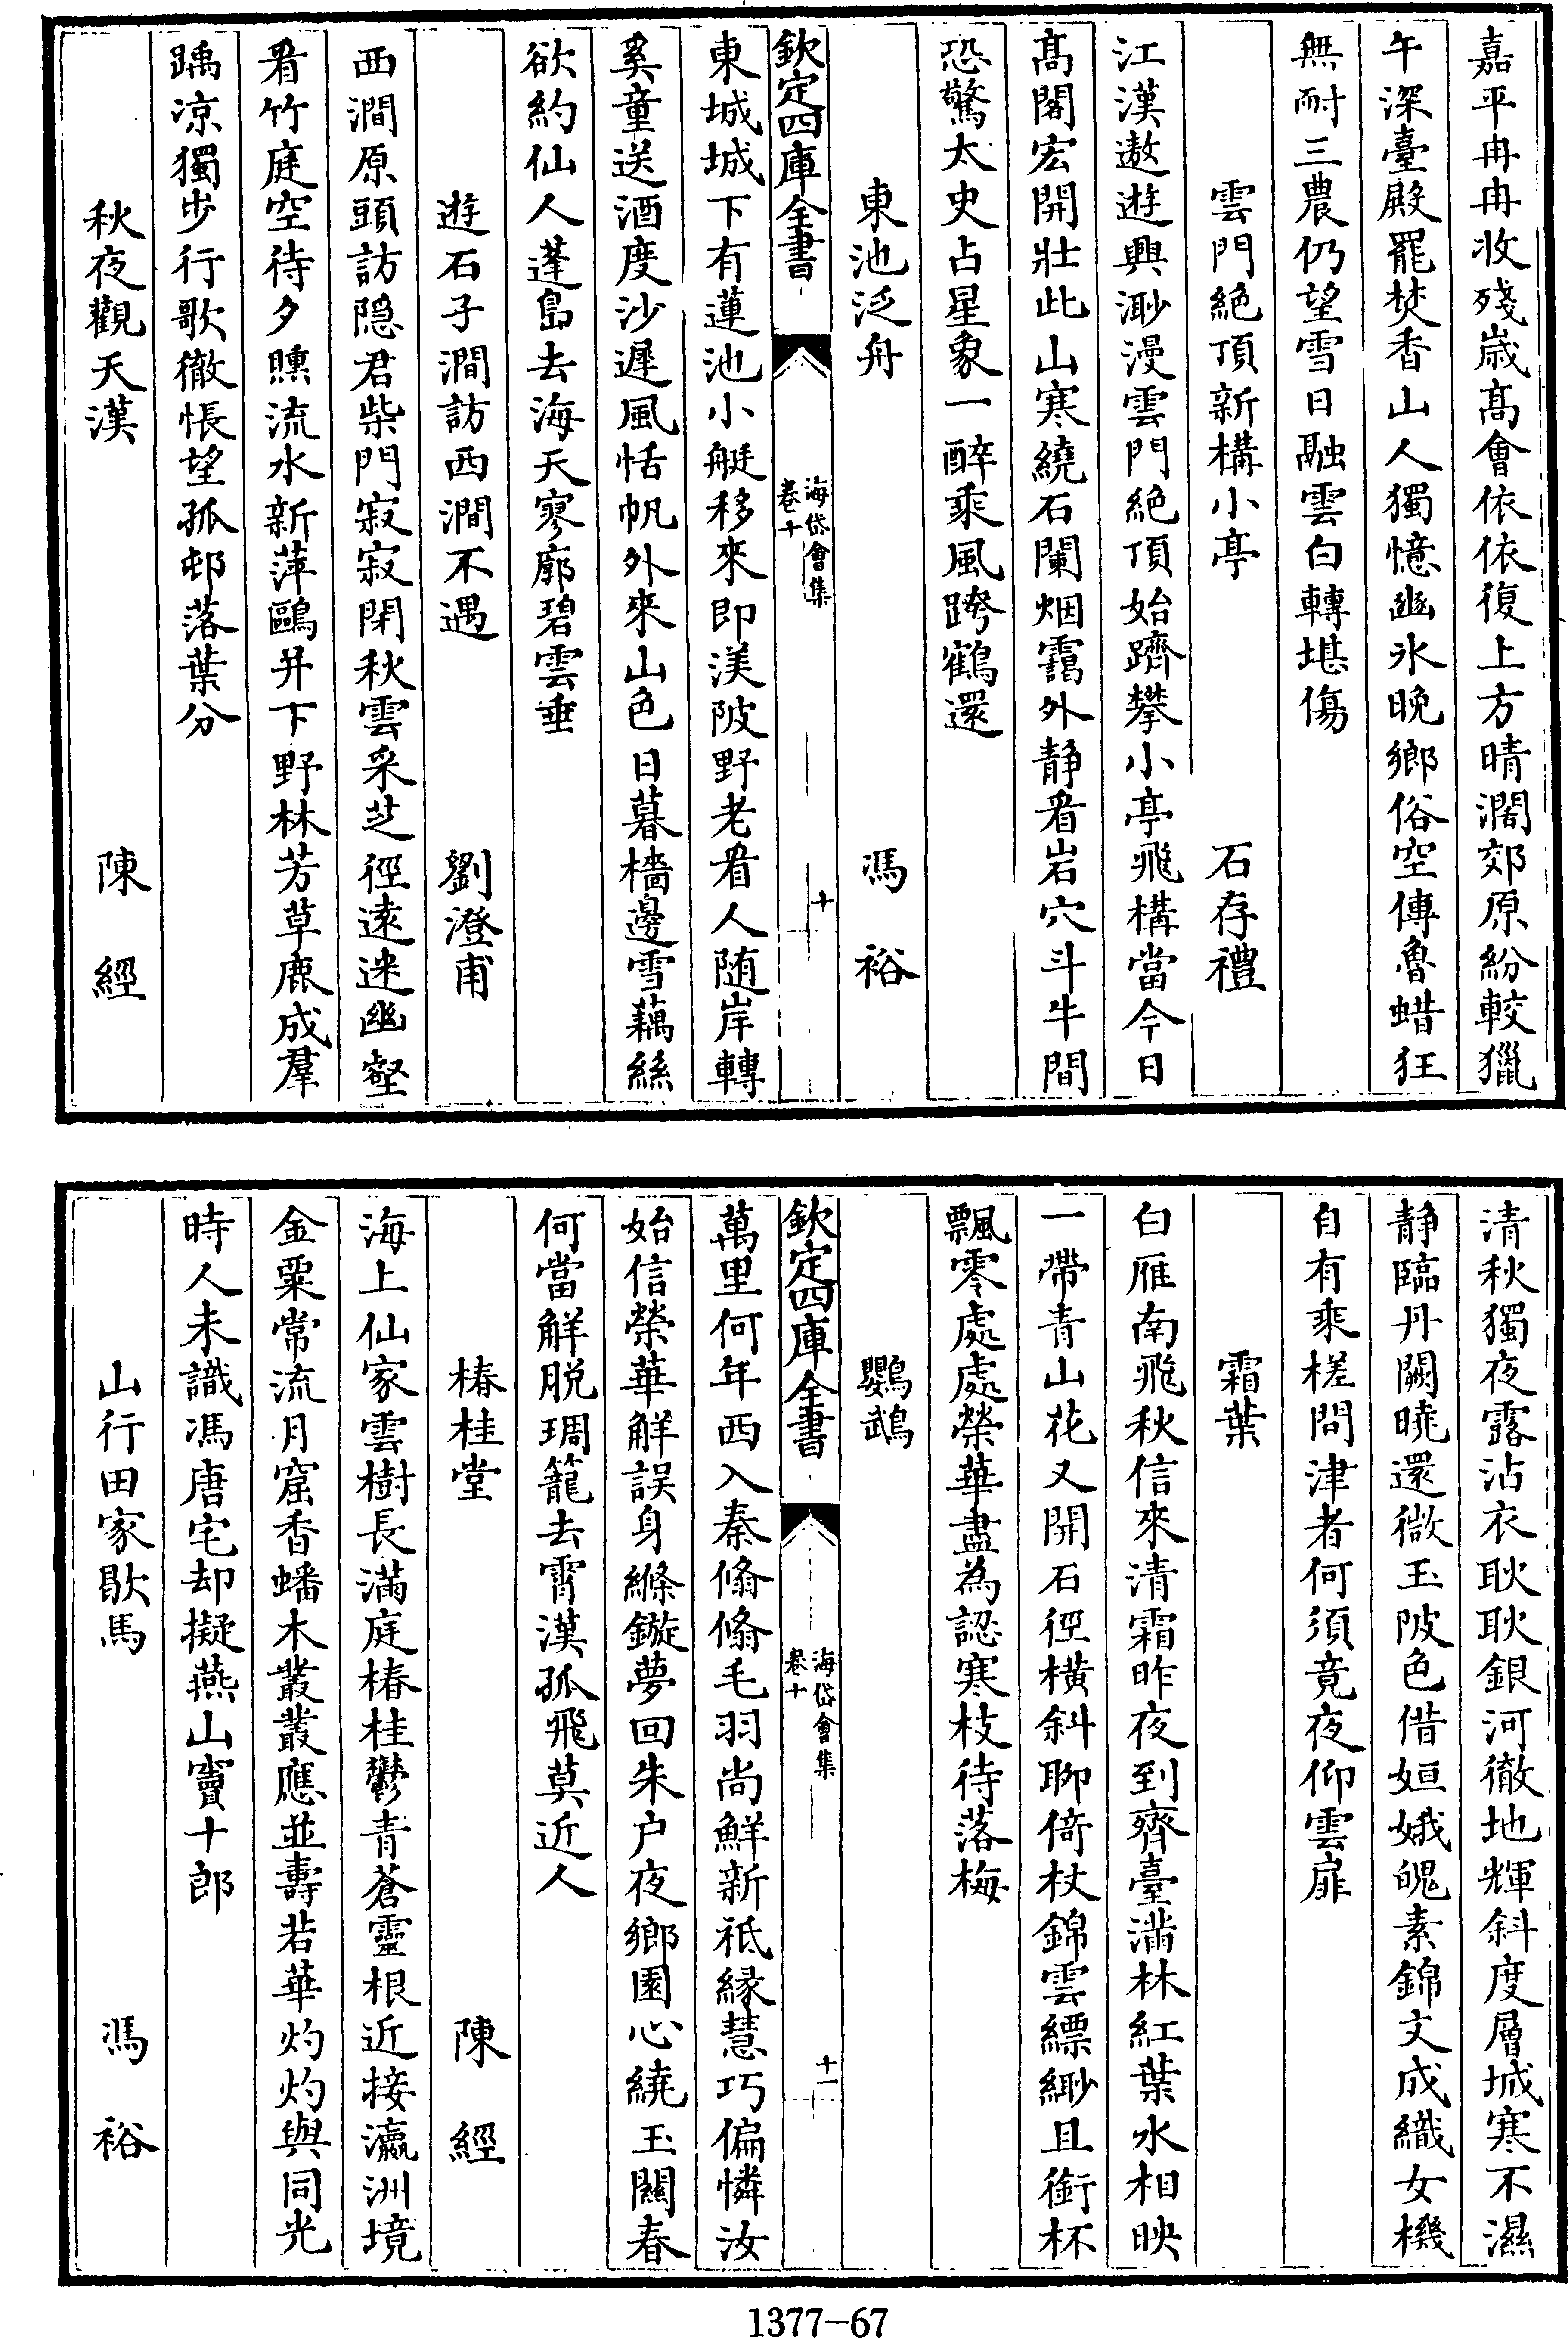 嘉平冉冉收殘歳髙會依依復上方晴濶郊原紛較獵
午深臺殿罷焚香山人獨憶幽氷晚鄉俗空傳魯蜡狂
無耐三農仍望雪日融雲白轉堪傷
雲門絶頂新構小亭 石存禮
江漢遨遊興渺漫雲門絶頂始躋攀小亭飛構當今日
髙閣宏開壯此山寒繞石闌烟靄外静看岩穴斗牛間
恐驚太史占星象一醉乘風跨鶴還
東池泛舟 馮裕
欽定四庫全書 海岱會集 卷十 十
東城城下有蓮池小艇移來即渼陂野老看人随岸轉
奚童送酒度沙遲風恬帆外來山色日暮檣邊雪藕絲
欲約仙人蓬島去海天寥廓碧雲垂
遊石子澗訪西澗不遇 劉澄甫
西澗原頭訪隠君柴門寂寂閉秋雲采芝徑逺迷幽壑
看竹庭空待夕曛流水新萍鷗并下野林芳草鹿成羣
踽凉獨步行歌徹悵望孤邨落葉分
秋夜觀天漢 陳經
清秋獨夜露沾衣耿耿銀河徹地輝斜度層城寒不濕
静臨丹闕曉還微玉陂色借姮娥魄素錦文成織女機
自有乘槎問津者何須竟夜仰雲扉
霜葉
白雁南飛秋信來清霜昨夜到齊臺滿林紅葉水相映
一帶青山花又開石徑横斜聊倚杖錦雲縹緲且銜杯
飄零處處榮華盡為認寒枝待落梅
鸚鵡
欽定四庫全書 海岱會集 卷十 十一
萬里何年西入秦翛翛毛羽尚鮮新祗縁慧巧偏憐汝
始信榮華解誤身縧鏇夢回朱户夜鄉園心繞玉關春
何當解脱琱籠去霄漢孤飛莫近人
椿桂堂 陳經
海上仙家雲樹長滿庭椿桂鬱青蒼靈根近接瀛洲境
金粟常流月窟香蟠木叢叢應並壽若華灼灼與同光
時人未識馮唐宅却擬燕山竇十郎
山行田家歇馬 馮裕
1377-67